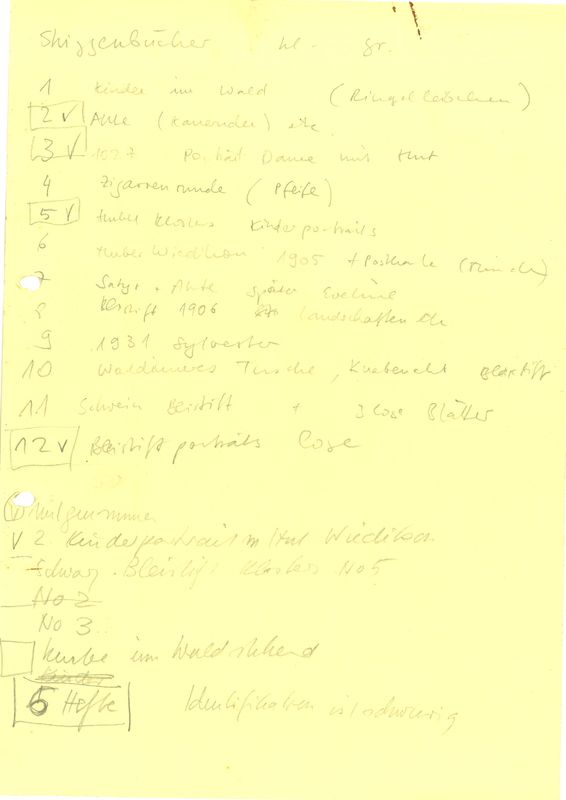 Skizzenbücher kl - gr.
1 Kinder im Wald (Ringelreihen)
2 V Akte (Kauernder) etc
3 V 1927 Porträt Dame mit Hut
4 Zigarrenrunde (Pfeife)
5 V Huber Klosters Kinderportraits
6 Huber Wiedikon 1905 + Postkarte
7 Satyr + Akte später Eveline
8 Bleistift 1906 Landschaften etc
9 1931 Sylvester
10 Waldinneres Tusche, Knabenakt Bleistift
11 Schwein Bleistift + 3 lose Blätter
12 V Bleistiftporträts lose
V Mitgenommen
V 2. Kinderportrait m Hut Wiedikon
Schwarz. Bleistift Klosters No 5
No 2
No 3
im Wald stehend
Kinder
6 Hefte Identifikation ist schwierig